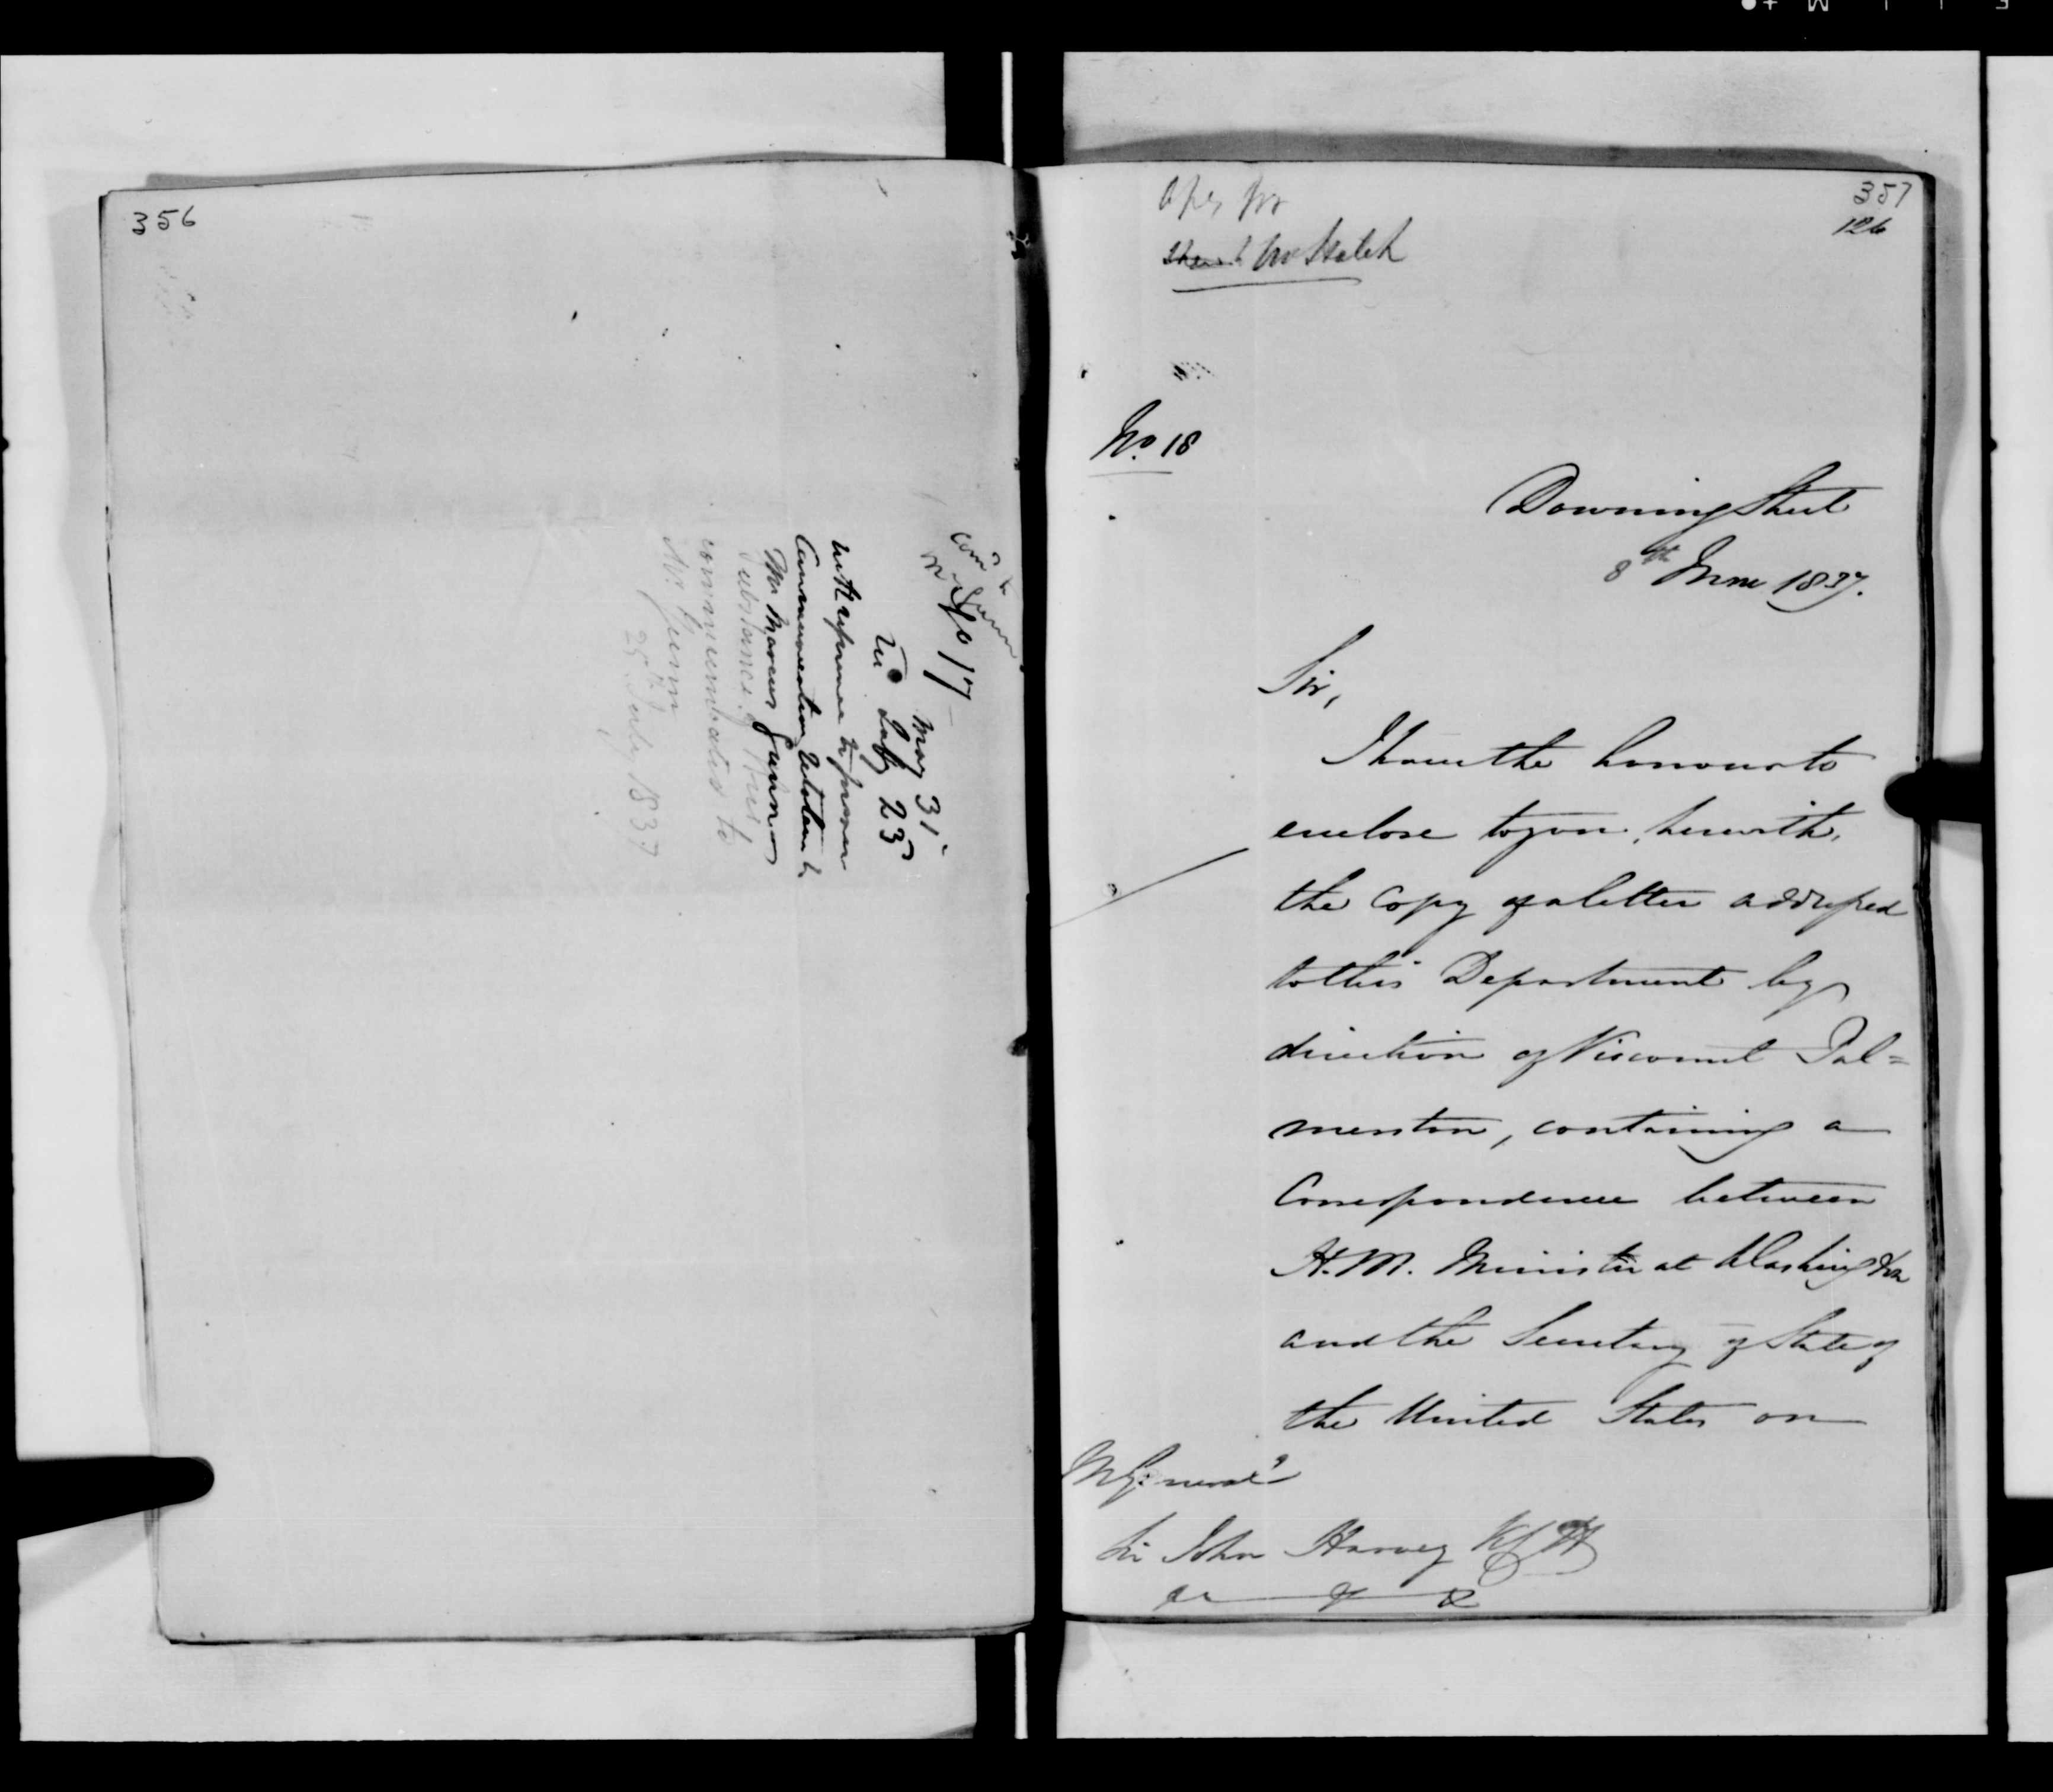 356
No 17
May 31
July 23
with reference to former
Communication relative to
Mr Marcus Gunn
Substance of this
communicated to
Mr. Gunn
25th July 1837
357
126
No. 18
Downing Street
8th June 1837.
Sir,
I have the honour to
enclose to you, herewith,
the copy of a letter addressed
to this Department by
direction of Viscount Pal=
merston, containing a
Correspondence between
H.M. Minister at Washington
and the Secretary of State of
the United States on
M General
Sir John Harvey KCH
&c &c &c